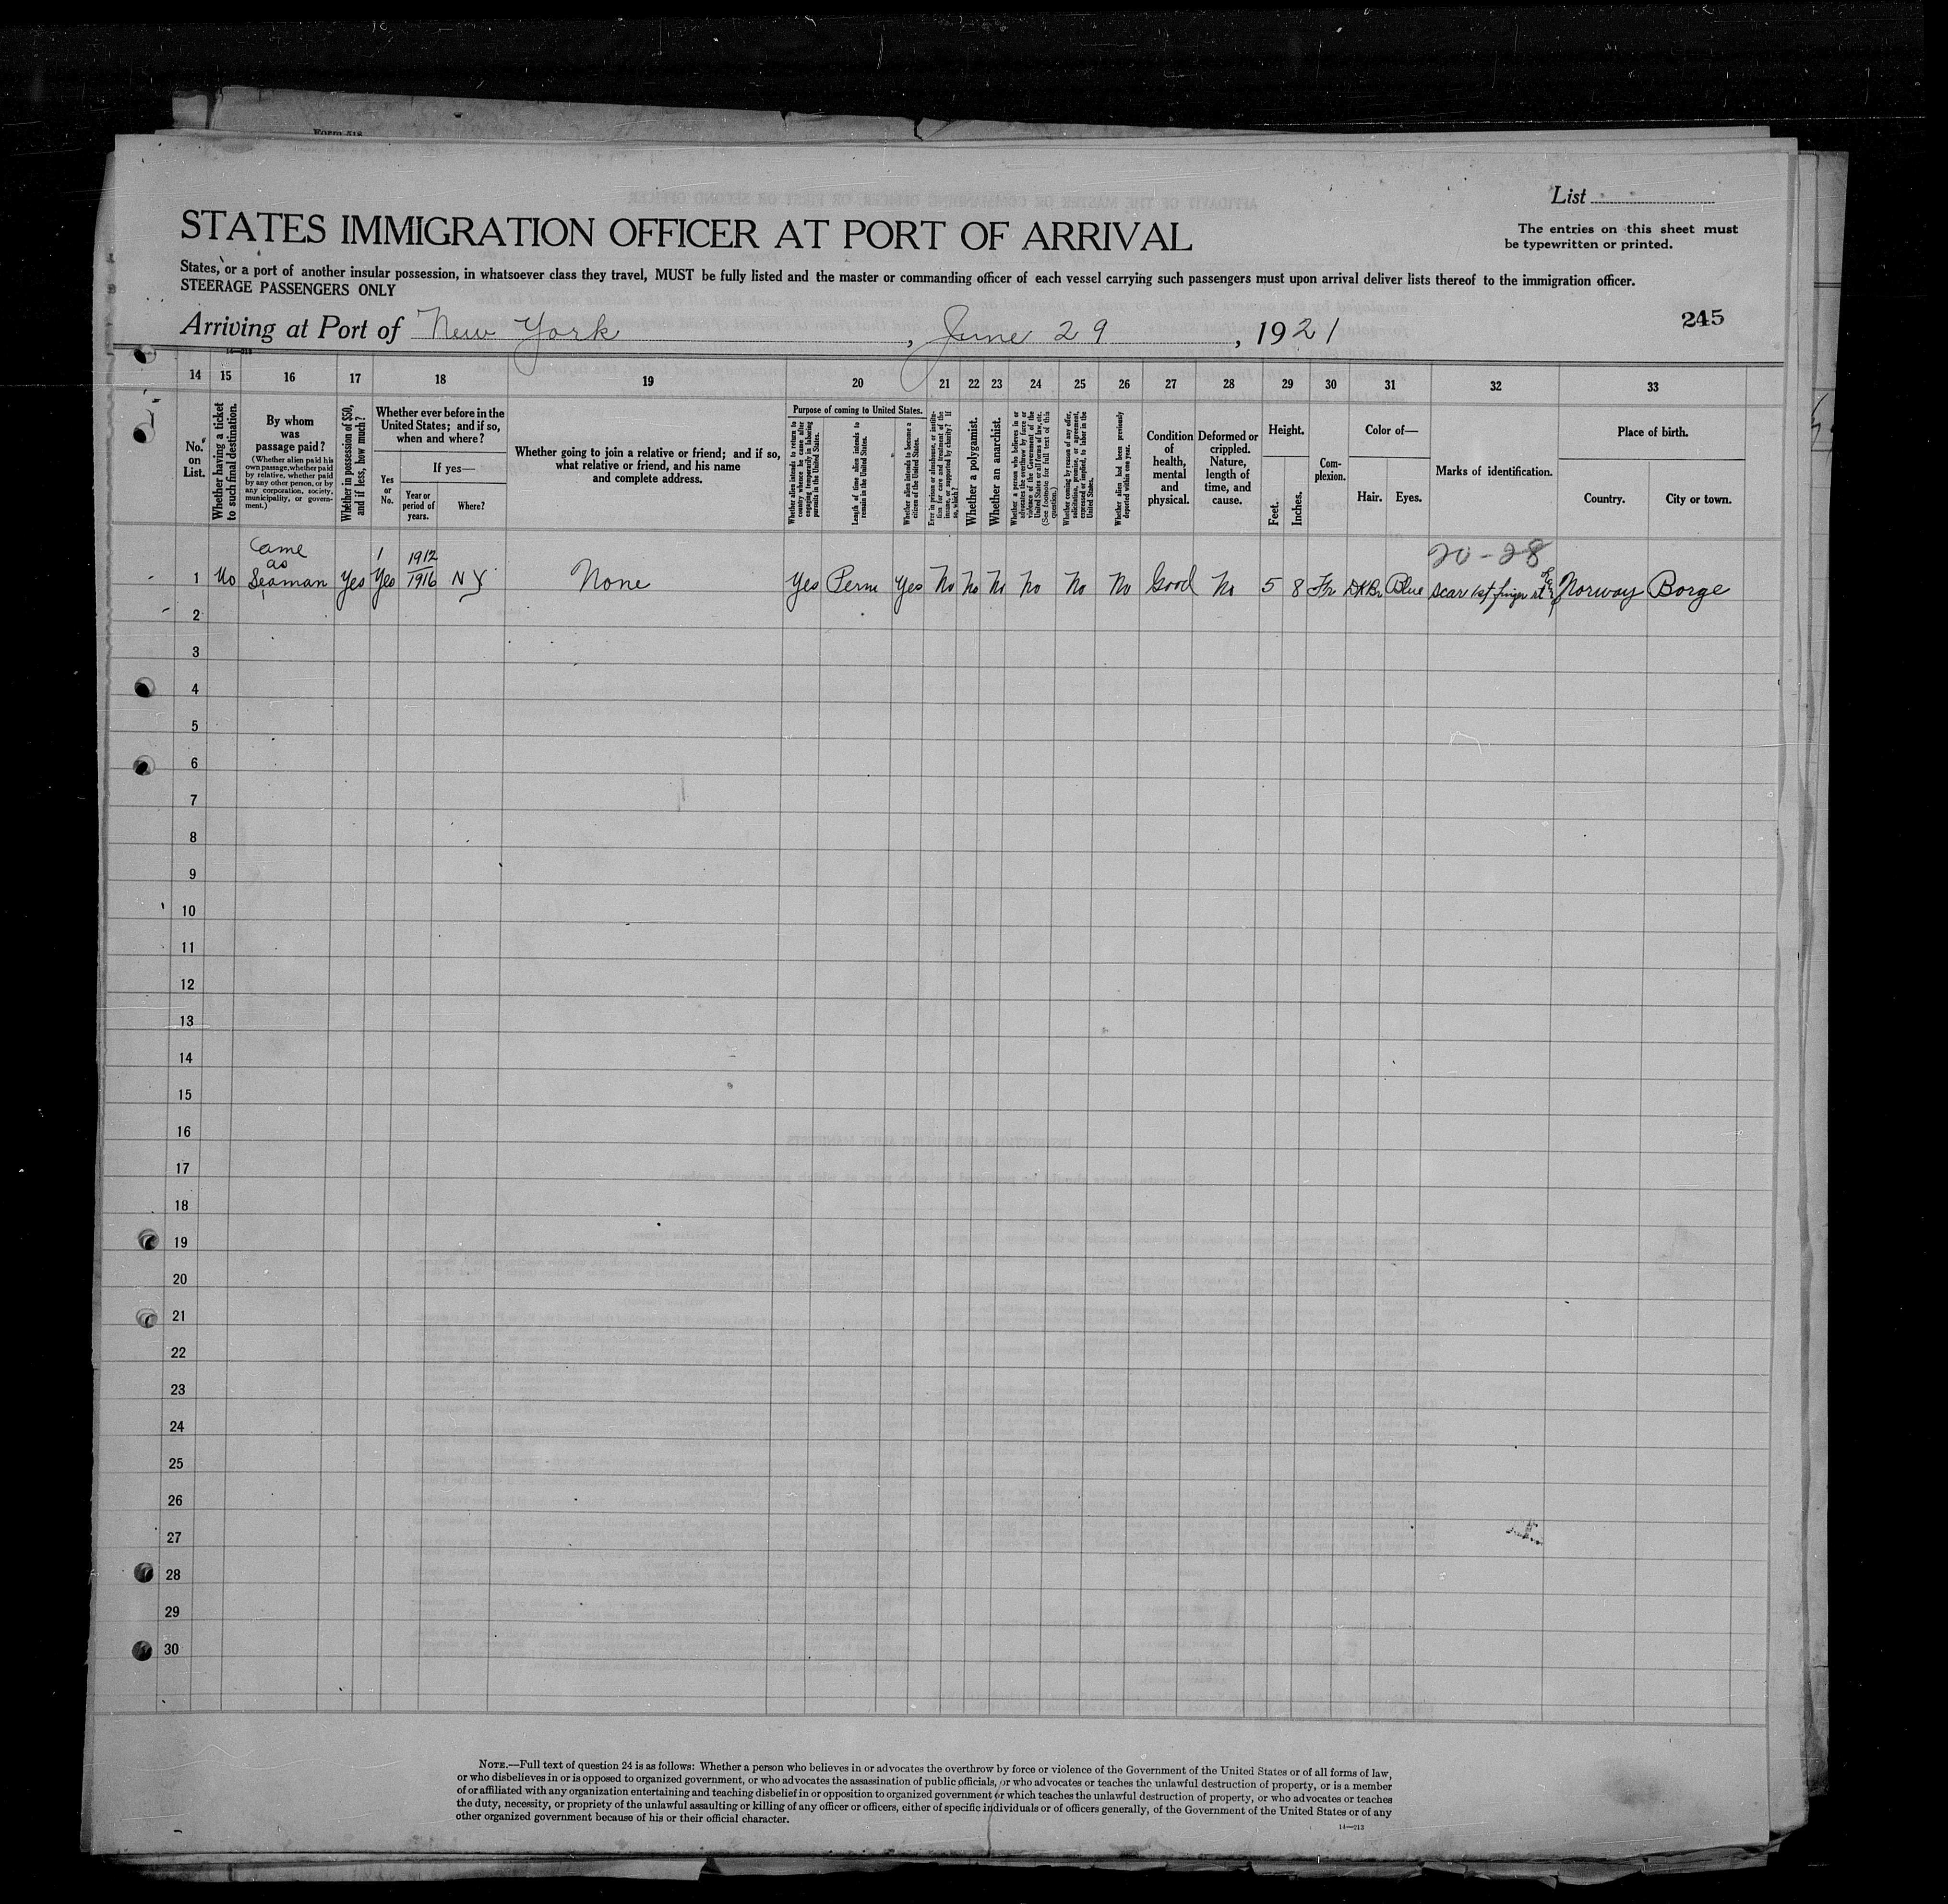 Form 518
List
STATES IMMIGRATION OFFICER AT PORT OF ARRIVAL
The entries on this sheet must
be typewritten or printed.
States, or a port of another insular possession, in whatsoever class they travel, MUST be fully listed and the master or commanding officer of each vessel carrying such passengers must upon arrival deliver lists thereof to the immigration officer.
STEERAGE PASSENGERS ONLY
Arriving at Port of New York, June 29, 1921
245
14 15 16 17 18 19 20 21 22 23 24 25 26 27 28 29 30 31 32 33
No. on List.
Whether having a ticket to such final destination.
By whom was passage paid?
(Whether alien paid his own passage, whether paid by relative, whether paid by any other person, or by any corporation, society, municipality, or government.)
Whether in possession of $50, and if less, how much?
Whether ever before in the United States; and if so, when and where?
Yes or No.
If yes—
Year or period of years.
Where?
Whether going to join a relative or friend; and if so, what relative or friend, and his name and complete address.
Purpose of coming to United States.
Whether alien intends to return to country whence he came after engaging temporarily in laboring pursuits in the United States.
Length of time alien intends to remain in the United States.
Whether alien intends to become a citizen of the United States.
Ever in prison or almshouse, or institution for care and treatment of the insane, or supported by charity? If so, which?
Whether a polygamist.
Whether an anarchist.
Whether a person who believes in or advocates the overthrow by force or violence of the Government of the United States or all forms of law, etc. (See footnote for full text of this question.)
Whether coming by reason of any offer, solicitation, promise, or agreement, expressed or implied, to labor in the United States.
Whether alien had been previously deported within one year.
Condition of health, mental and physical.
Deformed or crippled. Nature, length of time, and cause.
Height.
Feet.
Inches.
Complexion.
Color of—
Hair.
Eyes.
Marks of identification.
Place of birth.
Country.
City or town.
20-28
1 No Came as Seaman Yes 1 Yes 1912 1916 N Y None Yes Perm Yes No No No No No No Good No 5 8 Fr DK Br Blue Scar 1st finger rt Norway Borge
2
3
4
5
6
7
8
9
10
11
12
13
14
15
16
17
18
19
20
21
22
23
24
25
26
27
28
29
30
NOTE.—Full text of question 24 is as follows: Whether a person who believes in or advocates the overthrow by force or violence of the Government of the United States or of all forms of law,
or who disbelieves in or is opposed to organized government, or who advocates the assassination of public officials, or who advocates or teaches the unlawful destruction of property, or is a member
of or affiliated with any organization entertaining and teaching disbelief in or opposition to organized government or which teaches the unlawful destruction of property, or who advocates or teaches
the duty, necessity, or propriety of the unlawful assaulting or killing of any officer or officers, either of specific individuals or of officers generally, of the Government of the United States or of any
other organized government because of his or their official character.
14—213